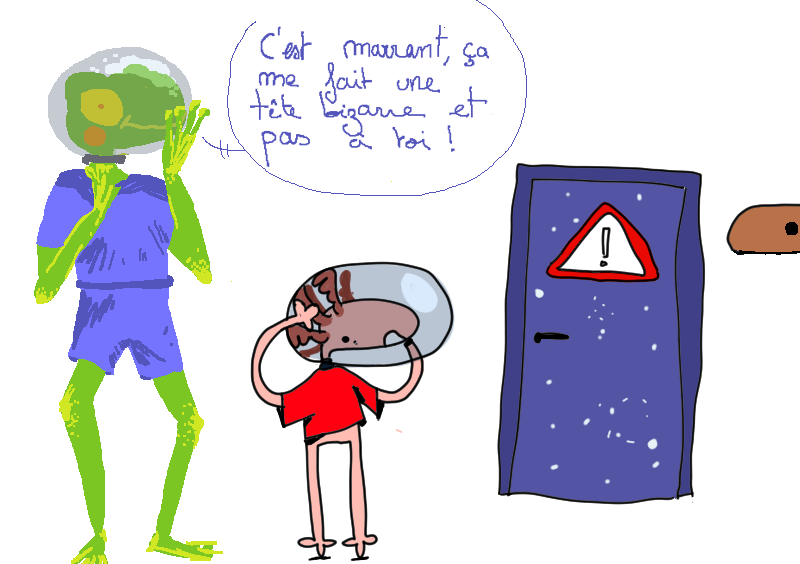 C'est marrant, ça
me fait une
tête bizarre et
pas à toi !
!